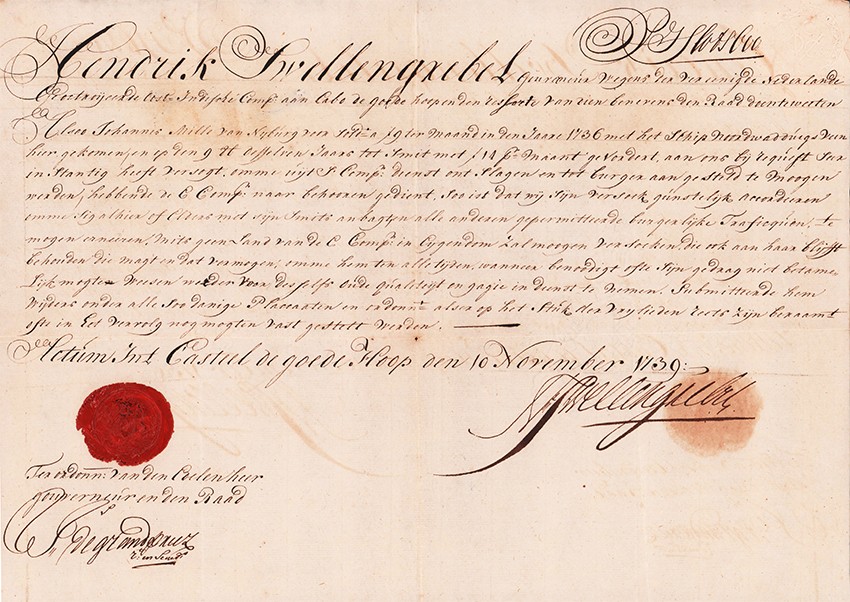 Hendrik Swellengrebel
Gouverneur wegens der vereenigde Nederlandse
Geoctroijeerde Oost Indische Comp: aan Cabo de goede hoop en den ressorte van dien benevens den Raad doen te weeten
Alsoo Johannis Mille van Nyburg voor soldaat ter Maand in den Jaare 1736 met het Schip Noordwaddinxveen
hier gekomen, en op den 9 deszelven Jaars tot Smit met ƒ14 p:r maant gevordert, aan ons bij request
instantig heeft versogt, omme uijt S Comp: dienst ontslagen en tot burger aangesteld te moogen
werden, hebbende de E Comp: naar behooren gedient, Soo ist dat wij Sijn versoek gunstelijk accordeeren
omme Sig alhier of Elders met sijn Smits anbagt en alle anderen gepermitteerde burgerlijke Trafiquen, te
mogen erneeren, mits geen Land van de E Comp: in Eygendom zal moogen versoeken, die ook aan haar blijft
behouden die magt en dat vermogen, omme hem ten alle tijden, wanneer benoodigt ofte Sijn gedrag niet betame-
lijk mogte weesen weder voor desselfs oude qualiteijt en gagie in dienst te neemen. Submitteerende hem
wijders onder alle Soodanige Placcaaten en ordonn: als er op het Stuk der vrylieden reets zijn beraamt
ofte in het vervolg nog mogten vast gestelt werden.
Actum Int Casteel de goede Hoop den 10 November 1739:
Ter ordonn: van den Edelen heer
gouverneur en den Raad